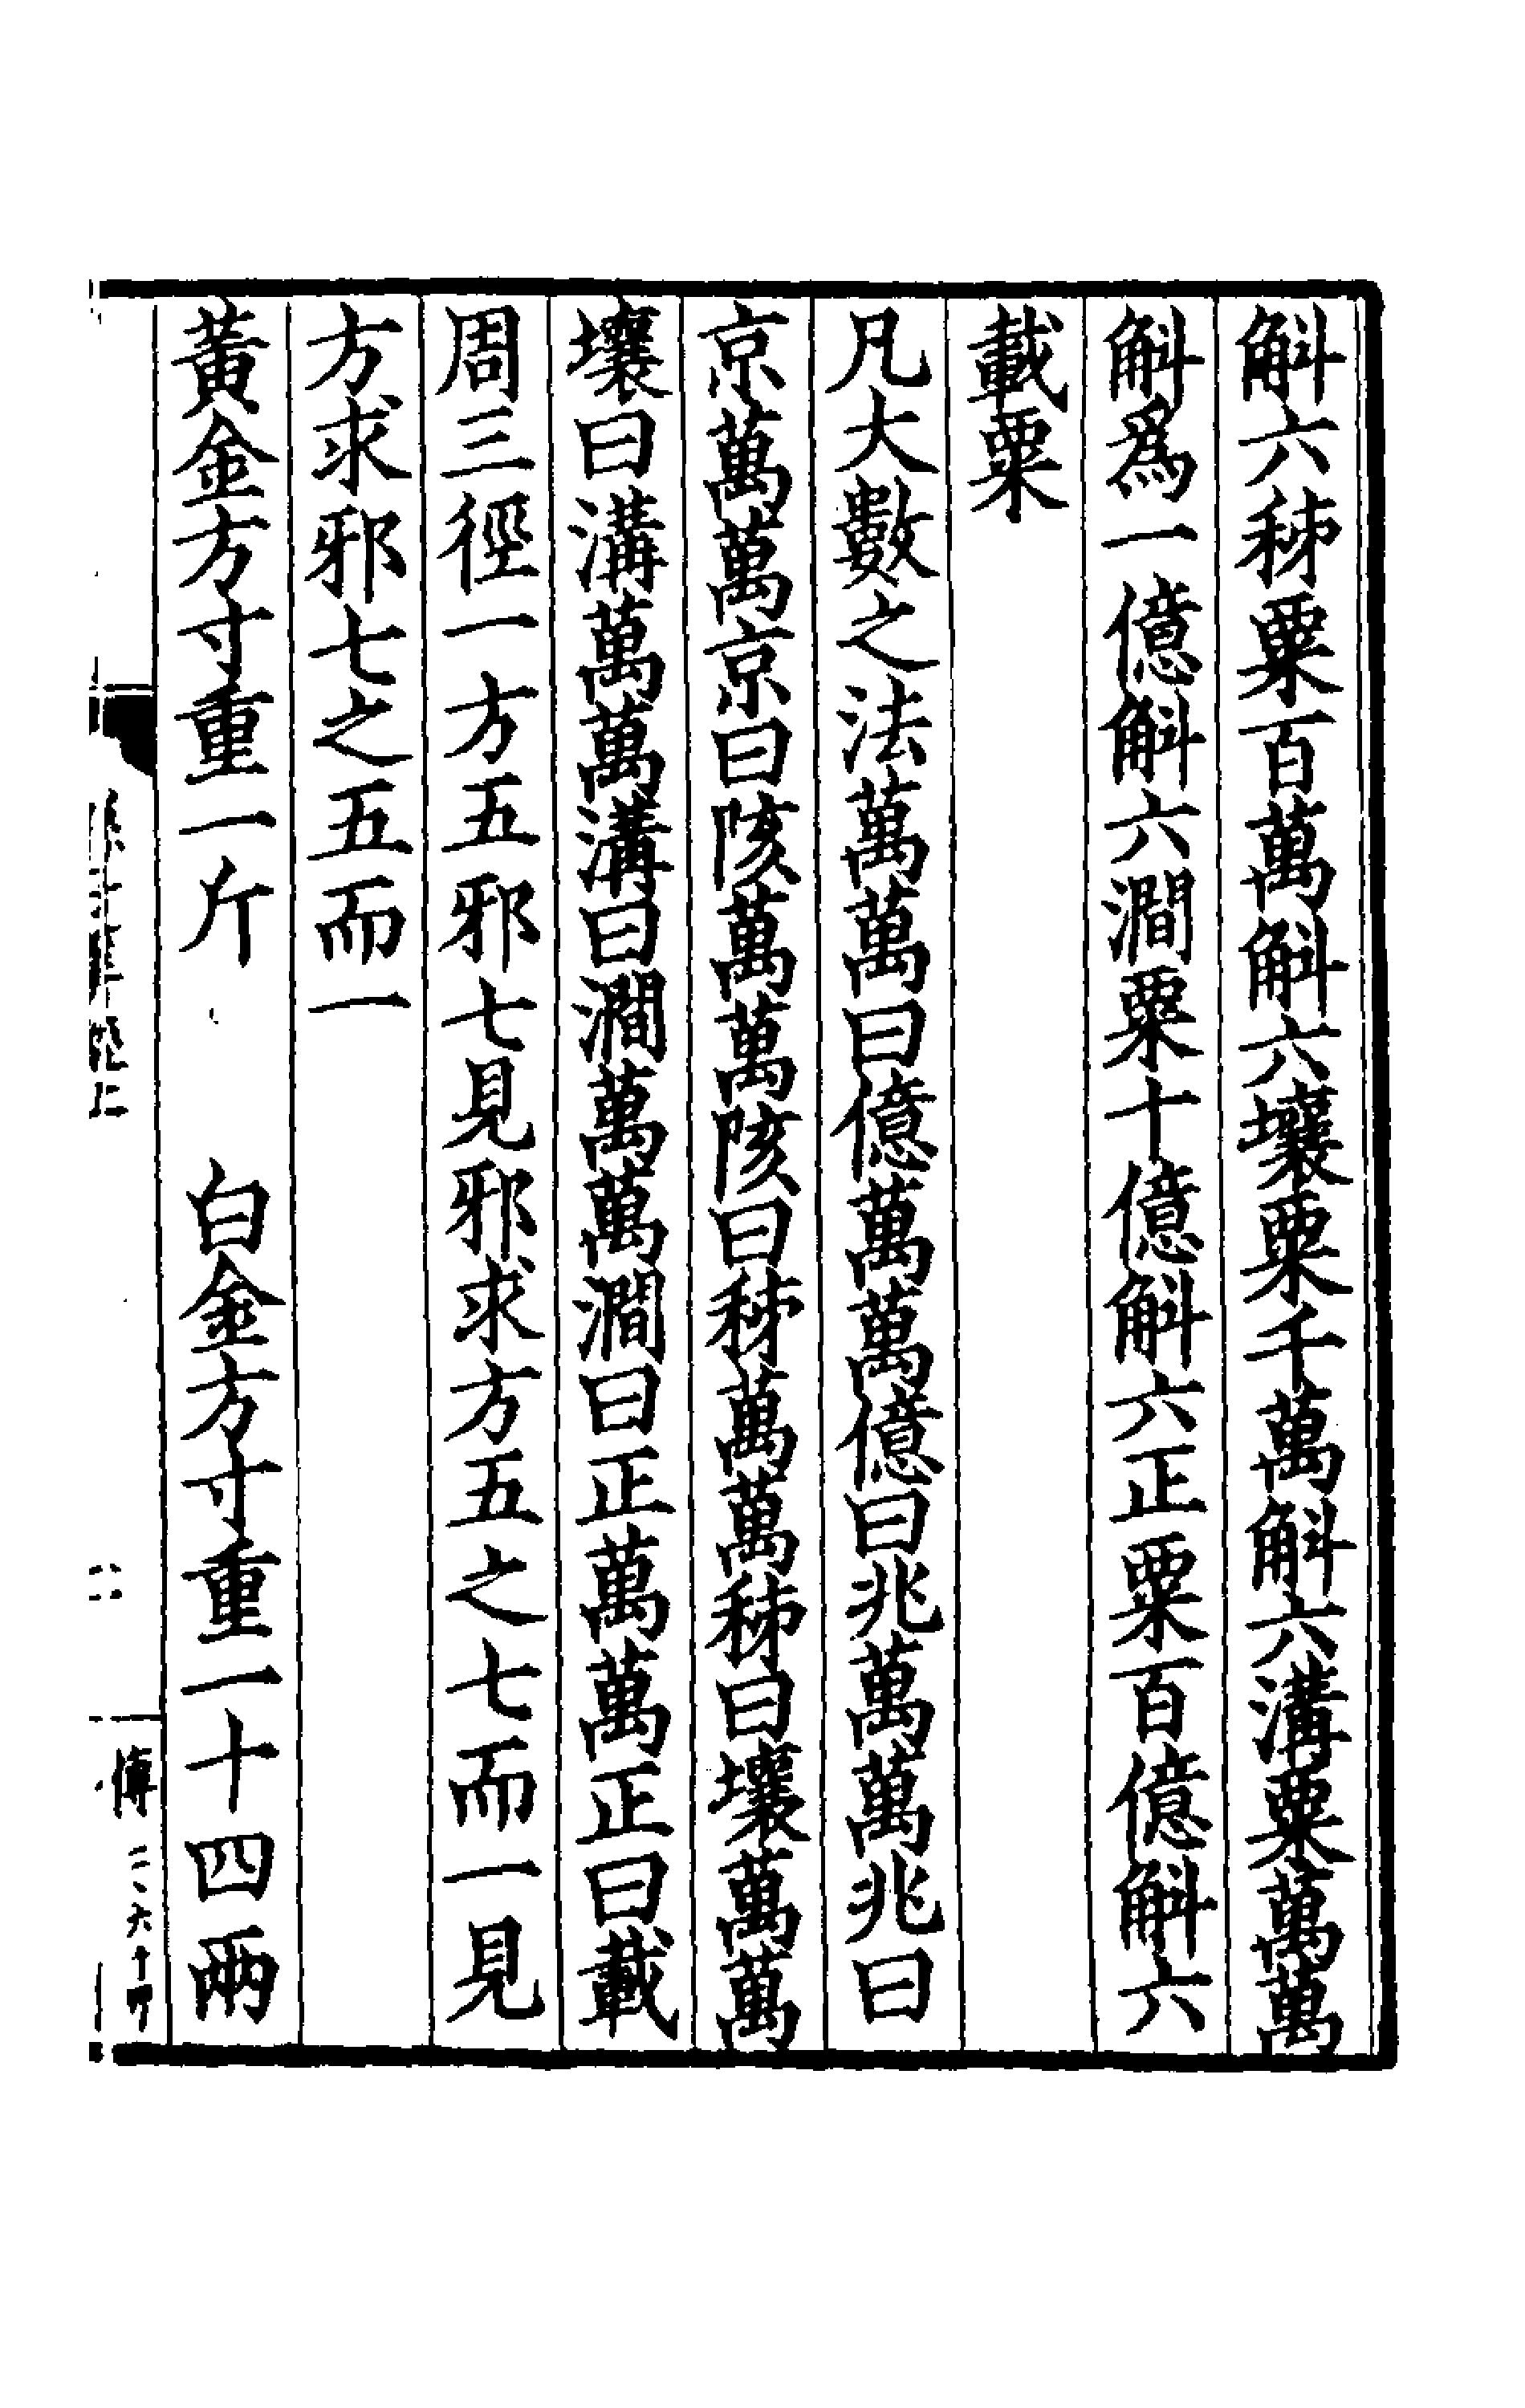 斛六秭粟百萬斛六壤粟千萬斛六溝粟萬萬
斛爲一億斛六澗粟十億斛六正粟百億斛六
載粟
凡大數之法萬萬曰億萬萬億曰兆萬萬兆曰
京萬萬京曰陔萬萬陔曰秭萬萬秭曰壤萬萬
壤曰溝萬萬溝曰澗萬萬澗曰正萬萬正曰載
周三徑一方五邪七見邪求方五之七而一見
方求邪七之五而一
黃金方寸重一斤　白金方寸重一十四兩
二、六十